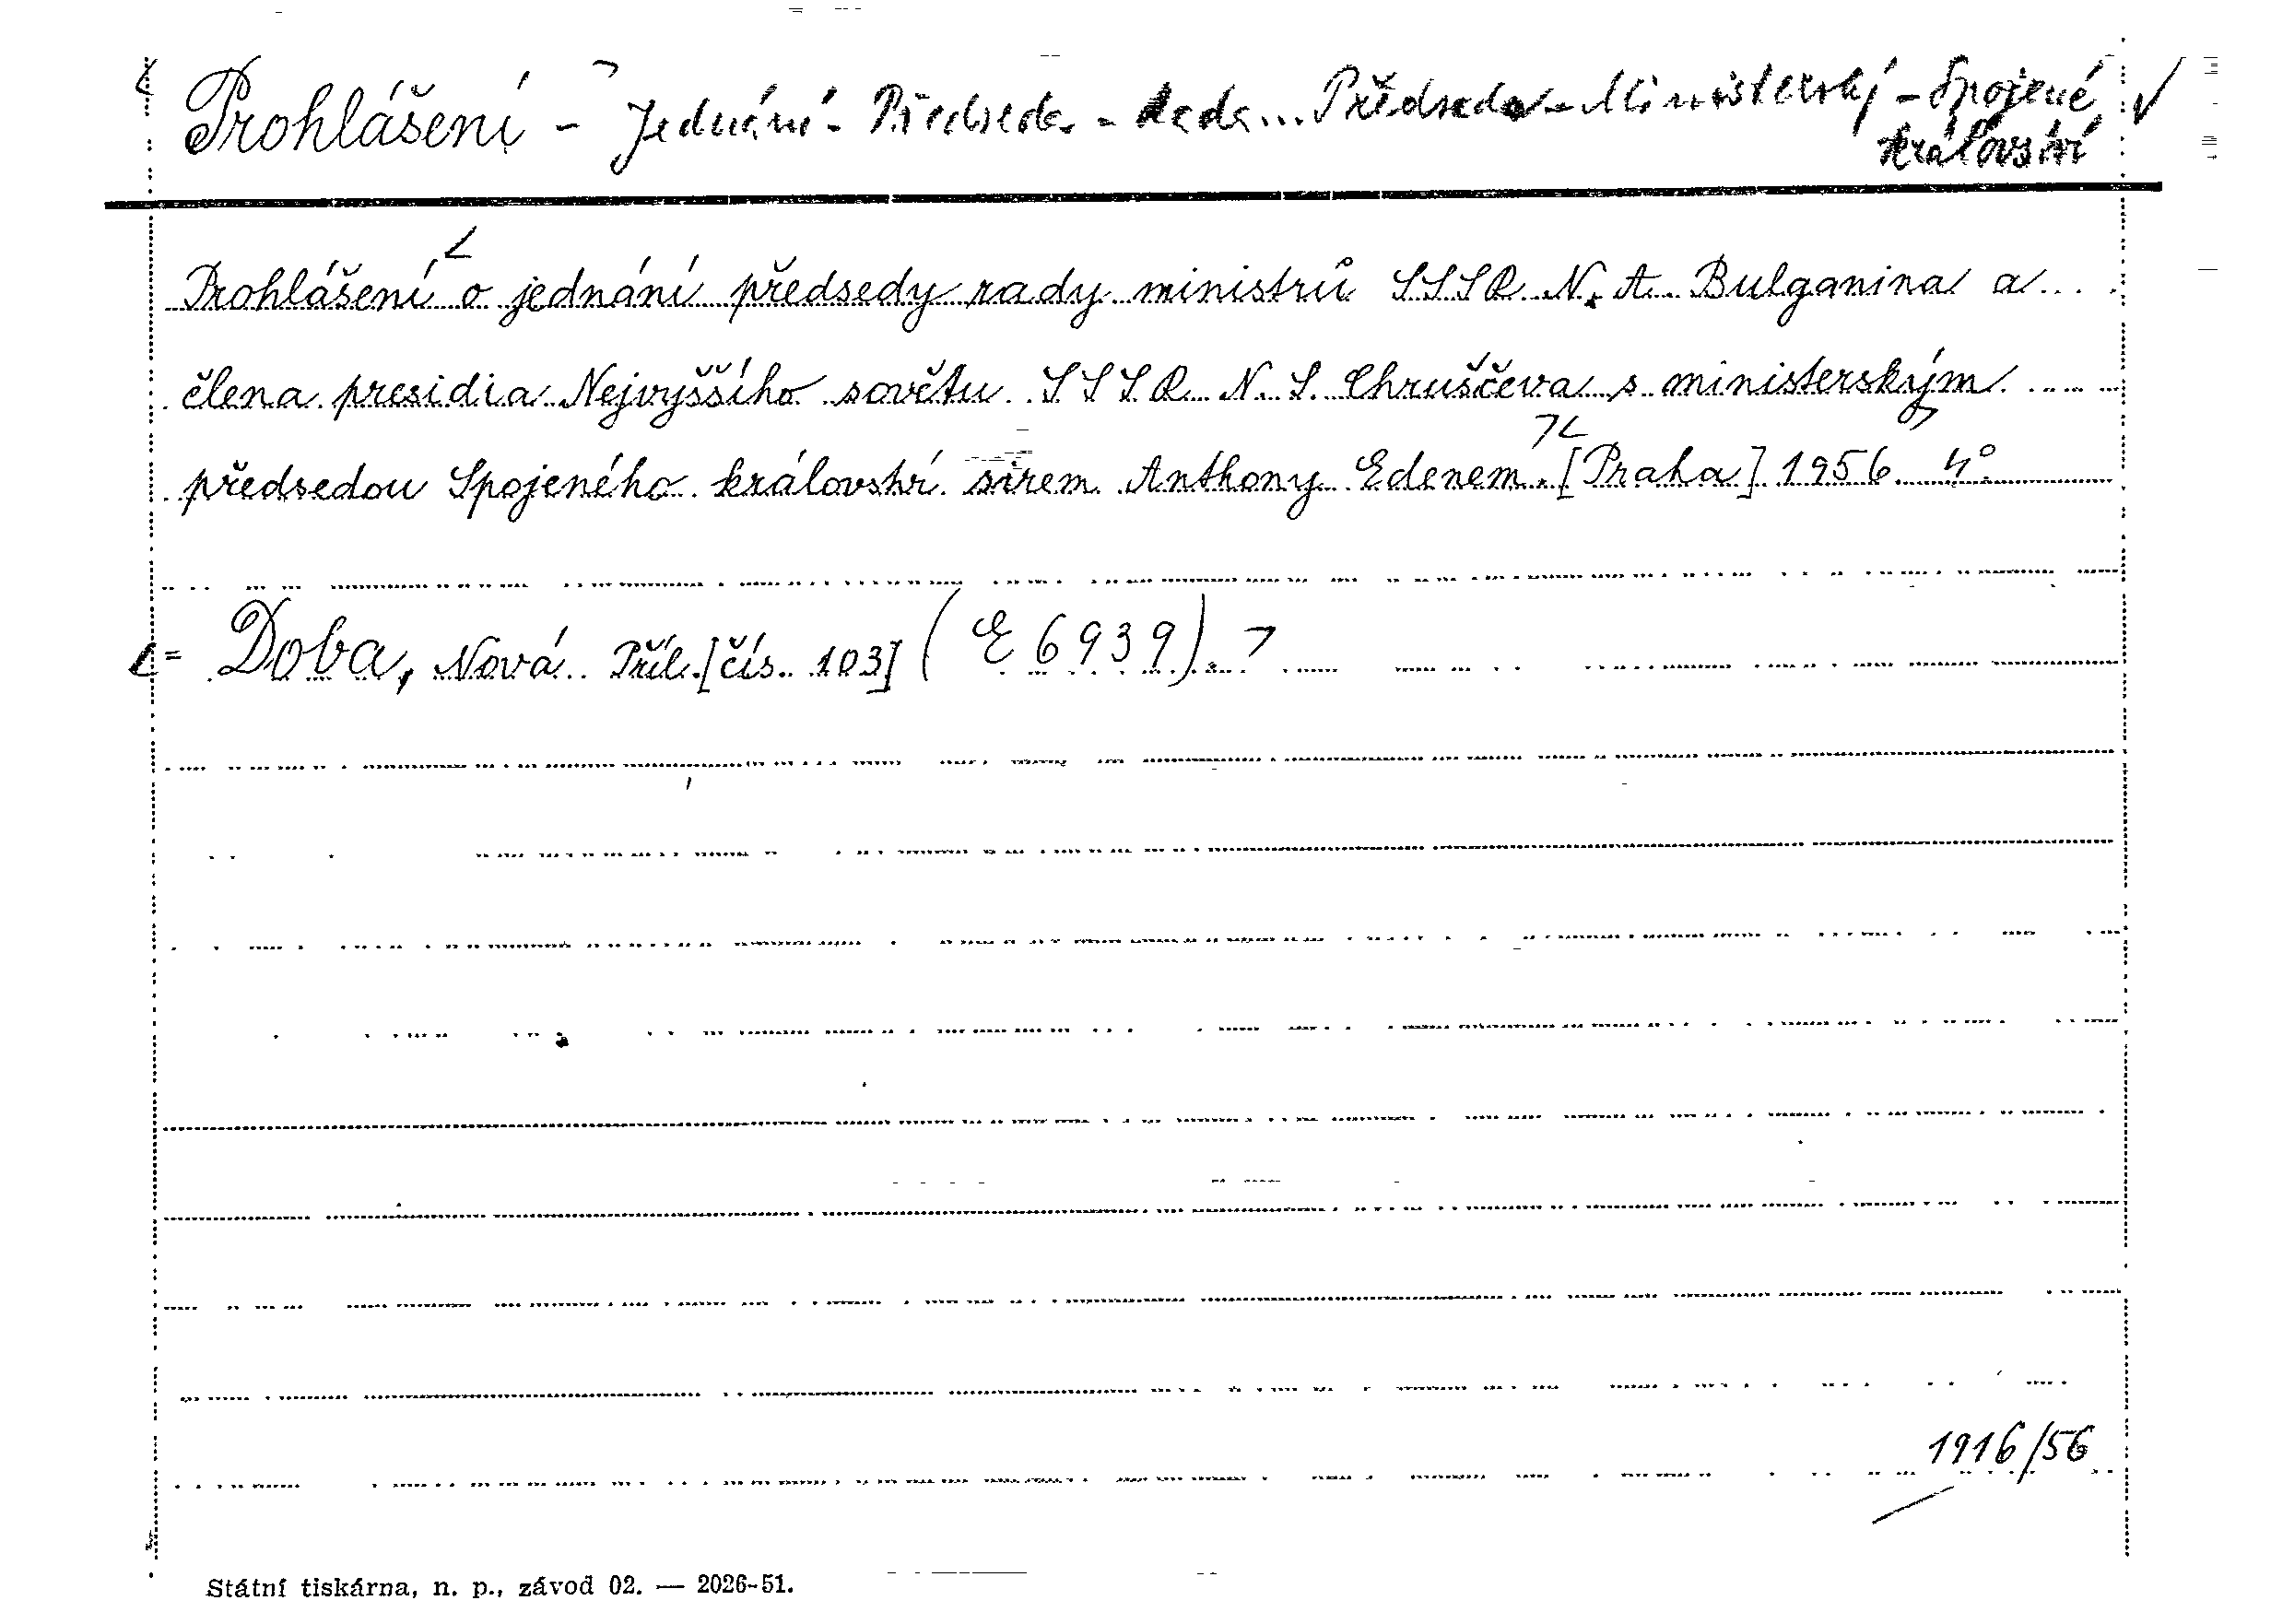 Prohlášení - Jednání - Předseda - Rada... Předseda - Ministerský - Spojené
království
Prohlášení o jednání předsedy rady ministrů SSSR N. A. Bulganina a
člena presidia Nejvyššího sovětu SSSR N. S. Chruščeva s ministerským
předsedou Spojeného království sirem Anthony Edenem. [Praha] 1956. 4°
= Doba, Nová. Příl. [čís. 103] (E 6939).
1916/56
Státní tiskárna, n. p., závod 02. — 2026-51.